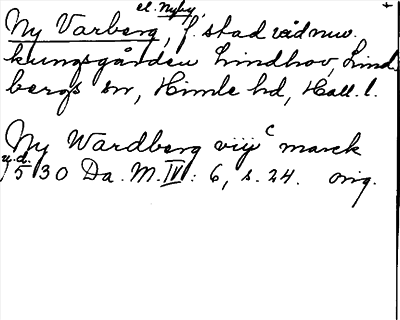 el. Nyby,
Ny Varberg, f. stad vid nuv.
kungsgården Lindhov, Lind-
bergs sn, Himle hd, Hall. l.
Ny Wardberg vijc marck
u.d.
1530 Da. M. IV: 6, s. 24. orig.